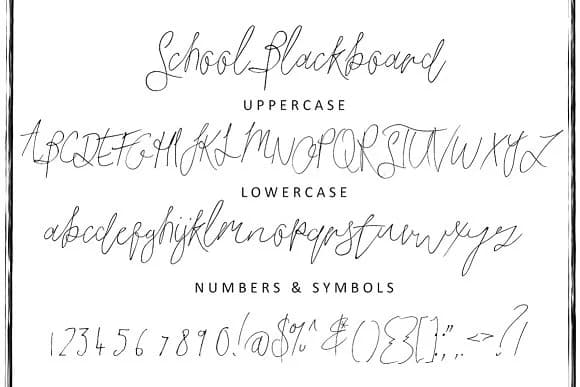 School Blackboard
UPPERCASE
ABCDEFGHIJKLMNOPQRSTUVWXYZ
LOWERCASE
abcdefghijklmnopqrstuvwxyz
NUMBERS & SYMBOLS
1234567890!@$%^&(){}[]:;"',.<>?/